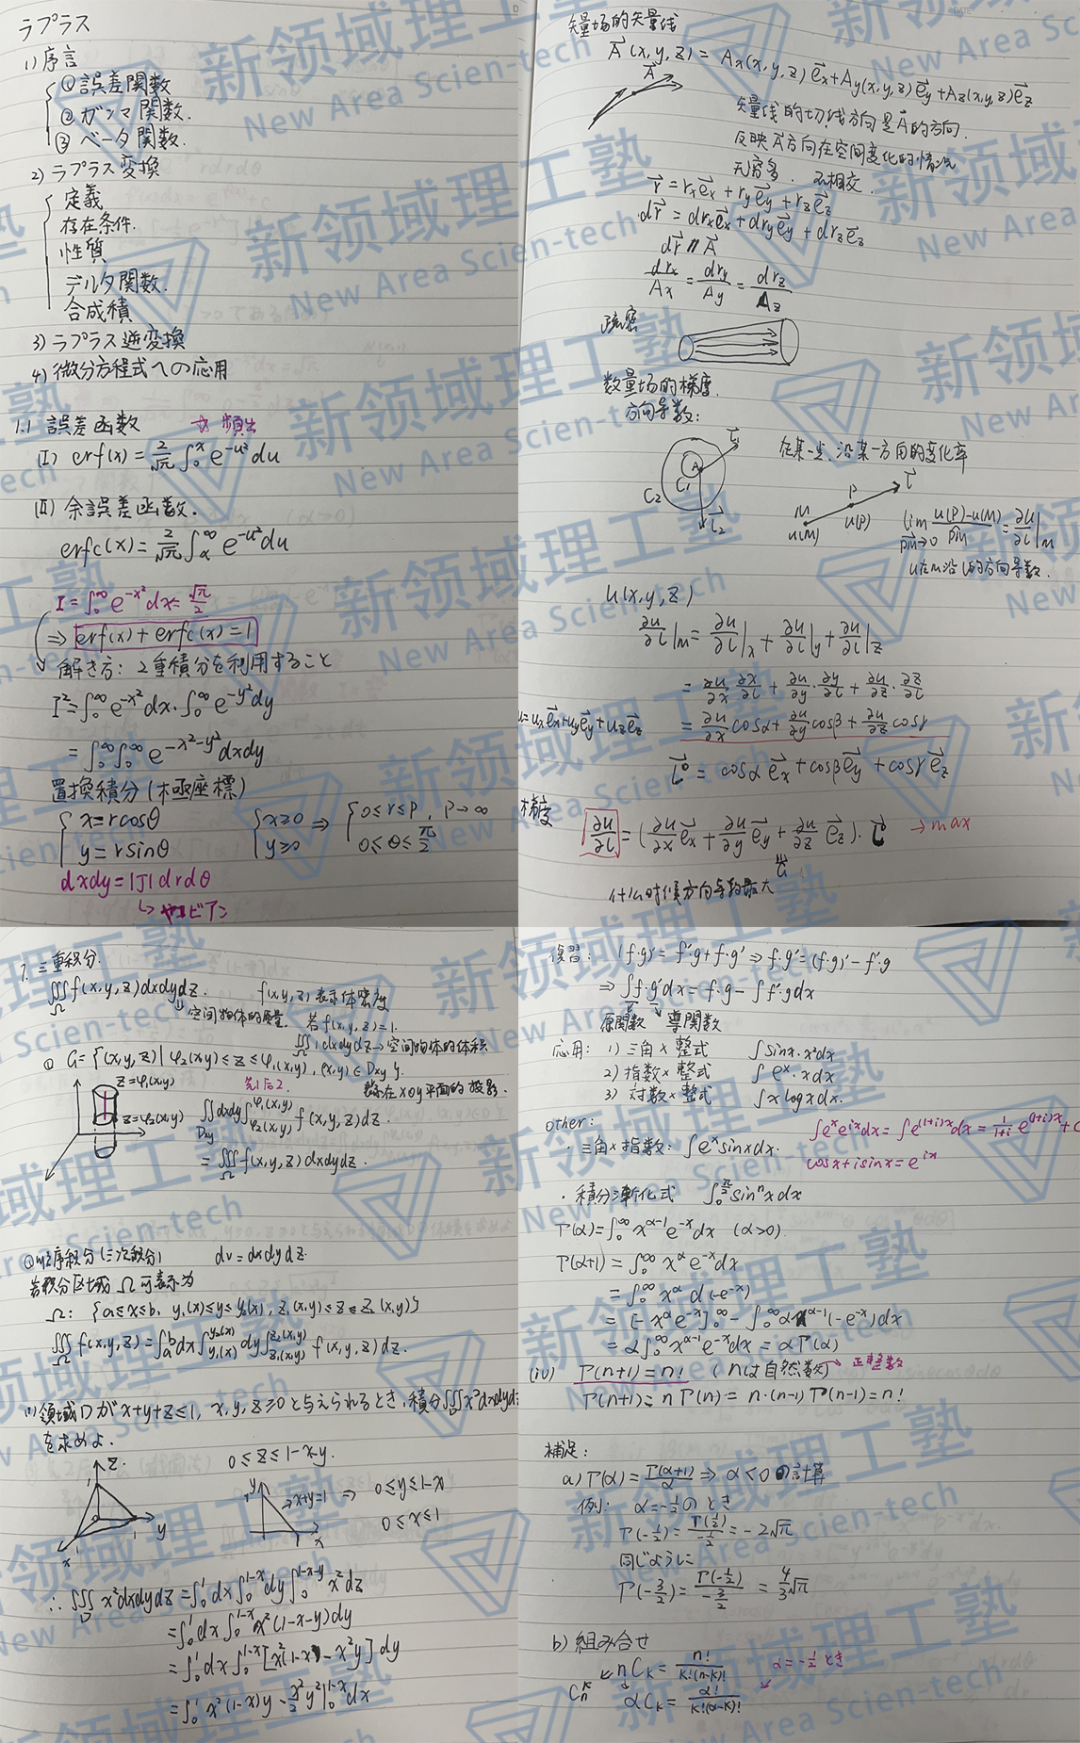 ラプラス
1) 序言
① 誤差関数
② ガンマ関数.
③ ベータ関数.
2) ラプラス変換
定義
存在条件.
性質
デルタ関数.
合成積
3) ラプラス逆変換
4) 微分方程式への応用
1.1 誤差函数 ☆ 頻出
(I) erf(x) = 2/√π ∫₀ˣ e^(-u²) du
(II) 余誤差函数.
erfc(x) = 2/√π ∫ₓ^∞ e^(-u²) du
I = ∫₀^∞ e^(-x²) dx = √π/2
⇒ erf(x) + erfc(x) = 1
解き方: 2重積分を利用すること
I² = ∫₀^∞ e^(-x²) dx · ∫₀^∞ e^(-y²) dy
= ∫₀^∞ ∫₀^∞ e^(-x²-y²) dxdy
置換積分 (極座標)
{ x = rcosθ { x≥0 ⇒ { 0≤r≤ρ, ρ→∞
y = rsinθ y≥0 0≤θ≤π/2
dxdy = |J| drdθ
↳ ヤコビアン
矢量场的矢量线
A⃗(x,y,z) = Ax(x,y,z)e⃗x + Ay(x,y,z)e⃗y + Az(x,y,z)e⃗z
A⃗
矢量线的切线方向是A⃗的方向.
反映A⃗方向在空间变化的情况
无穷多. 不相交.
r⃗ = rxe⃗x + rye⃗y + rze⃗z
dr⃗ = drxe⃗x + drye⃗y + drze⃗z
dr⃗ // A⃗
drx/Ax = dry/Ay = drz/Az
疏密
数量场的梯度.
方向导数:
在某一点, 沿某一方向的变化率
C₂ C₁ A l⃗₁ l⃗₂
M u(M) P u(P) l⃗
lim PM→0 (u(P)-u(M))/PM = ∂u/∂l |M
u在M沿l的方向导数.
u(x,y,z)
∂u/∂l |M = ∂u/∂l |x + ∂u/∂l |y + ∂u/∂l |z
= ∂u/∂x · ∂x/∂l + ∂u/∂y · ∂y/∂l + ∂u/∂z · ∂z/∂l
u = uxe⃗x + uye⃗y + uze⃗z = ∂u/∂x cosα + ∂u/∂y cosβ + ∂u/∂z cosγ
l⃗⁰ = cosα e⃗x + cosβ e⃗y + cosγ e⃗z
梯度 ∂u/∂l = (∂u/∂x e⃗x + ∂u/∂y e⃗y + ∂u/∂z e⃗z) · l⃗⁰ → max
什么时候方向导数最大
7. 三重积分.
∭Ω f(x,y,z) dxdydz. f(x,y,z) 表示体密度
↳ 空间物体的质量. 若 f(x,y,z) = 1.
∭Ω 1 dxdydz → 空间物体的体积
① G = {(x,y,z) | φ₂(x,y) ≤ z ≤ φ₁(x,y), (x,y) ∈ Dxy}.
先1后2. 在xoy平面的投影.
z = φ₁(x,y)
z = φ₂(x,y) ∬Dxy dxdy ∫φ₂(x,y)^φ₁(x,y) f(x,y,z) dz.
= ∭Ω f(x,y,z) dxdydz.
序积分 (三次积分) dv = dxdydz.
若积分区域 Ω 可表示为
Ω: {a≤x≤b, y₁(x)≤y≤y₂(x), z₁(x,y)≤z≤z₂(x,y)}
∭Ω f(x,y,z) = ∫ₐᵇ dx ∫y₁(x)^y₂(x) dy ∫z₁(x,y)^z₂(x,y) f(x,y,z) dz.
(1) 領域 D が x+y+z≤1, x,y,z≥0 と与えられるとき, 積分 ∭D x² dxdydz
を求めよ.
0≤z≤1-x-y.
x+y=1 ⇒ 0≤y≤1-x
0≤x≤1
∴ ∭D x² dxdydz = ∫₀¹ dx ∫₀^(1-x) dy ∫₀^(1-x-y) x² dz
= ∫₀¹ dx ∫₀^(1-x) x²(1-x-y) dy
= ∫₀¹ dx ∫₀^(1-x) [x²(1-x) - x²y] dy
= ∫₀¹ x²(1-x)y - x²/2 y² |₀^(1-x) dx
復習: (f·g)' = f'·g + f·g' ⇒ f·g' = (f·g)' - f'·g
⇒ ∫f·g'dx = f·g - ∫f'·g dx
原関数 導関数
応用: 1) 三角 × 整式 ∫sinx·x²dx
2) 指数 × 整式 ∫eˣ·xdx
3) 対数 × 整式 ∫x logx dx.
other:
· 三角×指数: ∫eˣ sinx dx. ∫eˣ e^(ix) dx = ∫e^((1+i)x) dx = 1/(1+i) e^((1+i)x) + C
cosx + isinx = e^(ix)
· 積分漸化式 ∫₀^(π/2) sinⁿx dx
Γ(α) = ∫₀^∞ x^(α-1) e^(-x) dx (α>0).
Γ(α+1) = ∫₀^∞ x^α e^(-x) dx
= ∫₀^∞ x^α d(-e^(-x))
= [-x^α e^(-x)]₀^∞ - ∫₀^∞ αx^(α-1) (-e^(-x)) dx
= α∫₀^∞ x^(α-1) e^(-x) dx = αΓ(α)
(iv) Γ(n+1) = n! (nは自然数) → 正整数
Γ(n+1) = nΓ(n) = n·(n-1)Γ(n-1) = n!
補足:
a) Γ(α) = Γ(α+1)/α ⇒ α<0 の計算
例: α = -1/2 のとき
Γ(-1/2) = Γ(1/2)/(-1/2) = -2√π
同じように
Γ(-3/2) = Γ(-1/2)/(-3/2) = 4/3 √π
b) 組み合せ
nCk = n!/(k!(n-k)!) α = -1/2 とき
Cₙᵏ αCk = α!/(k!(α-k)!)
新领域理工塾
New Area Scien-tech